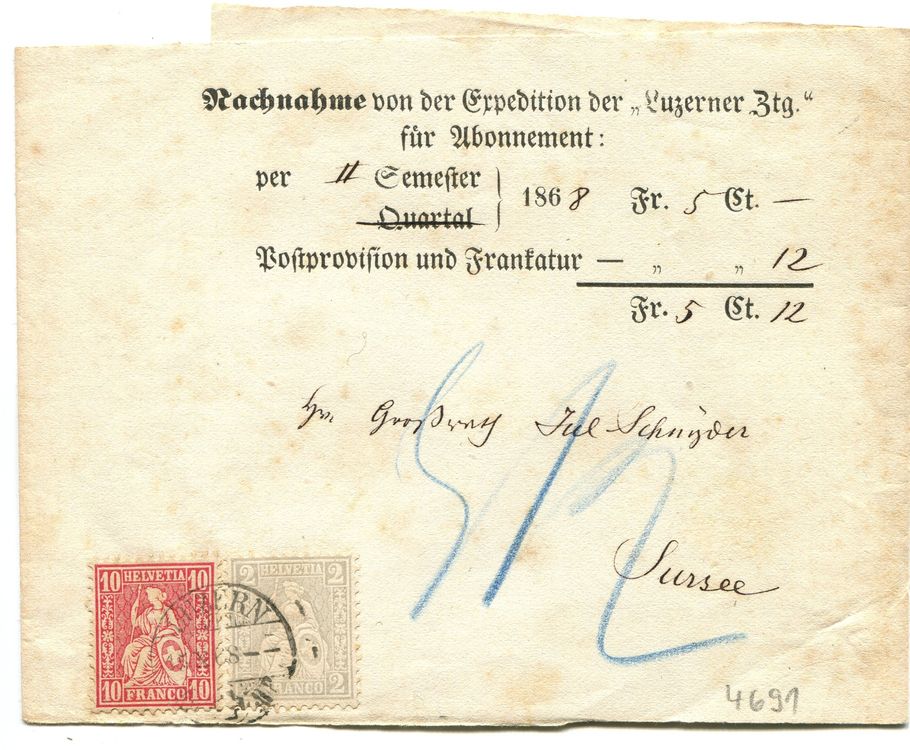 Nachnahme von der Expedition der „Luzerner Ztg.“
für Abonnement:
per II Semester
Quartal
1868 Fr. 5 Ct. —
Postprovision und Frankatur — „ „ 12
Fr. 5 Ct. 12
Hrn Großrath Jul Schnÿder
512
Sursee
10 HELVETIA 10
10 FRANCO 10
2 HELVETIA 2
FRANCO 2
4691